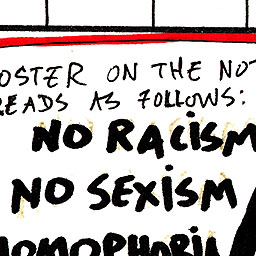 OSTER ON THE NOT
READS AS FOLLOWS:
NO RACISM
NO SEXISM
HOMOPHOBIA